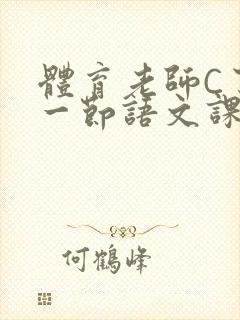 體育老師C
一節語文課
何鶴峰